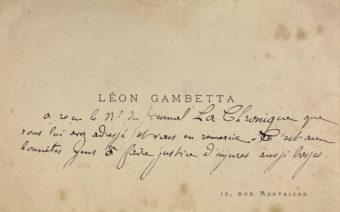 LÉON GAMBETTA
a reçu le N° du Journal La Chronique que
vous lui avez adressé et vous en remercie. C'est aux
honnêtes gens à faire justice d'injures aussi
12, RUE MONTAIGNE